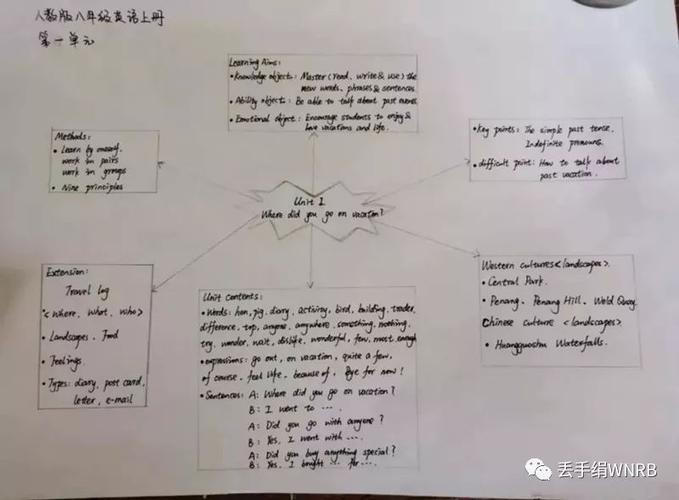 人教版八年级英语上册
第一单元
Learning Aims:
• Knowledge object: Master (read, write & use) the
new words, phrases & sentences.
• Ability object: Be able to talk about past events.
• Emotional object: Encourage students to enjoy &
love vacations and life.
Methods:
• Learn by oneself.
work in pairs
work in groups
• Nine principles
• Key points: The simple past tense.
Indefinite pronouns.
• difficult point: How to talk about
past vacation.
Unit 1
Where did you go on vacation?
Extension:
Travel log
<Where, What, Who>
• Landscapes. Food
• Feelings.
• Types: diary, post card,
letter, e-mail
Unit Contents:
• Words: hen, pig, diary, activity, bird, building, trader,
difference, top, anyone, anywhere, something, nothing,
try, wonder, wait, dislike, wonderful, few, most, enough
• expressions: go out, on vacation, quite a few,
of course, feel like, because of, Bye for now!
• Sentences: A: Where did you go on vacation?
B: I went to ....
A: Did you go with anyone?
B: Yes, I went with ....
A: Did you buy anything special?
B: Yes, I bought ... for ....
Western cultures <landscapes>.
• Central Park.
• Penang, Penang Hill, Weld Quay.
Chinese culture <landscapes>
• Huangguoshu Waterfalls.
丢手绢WNRB